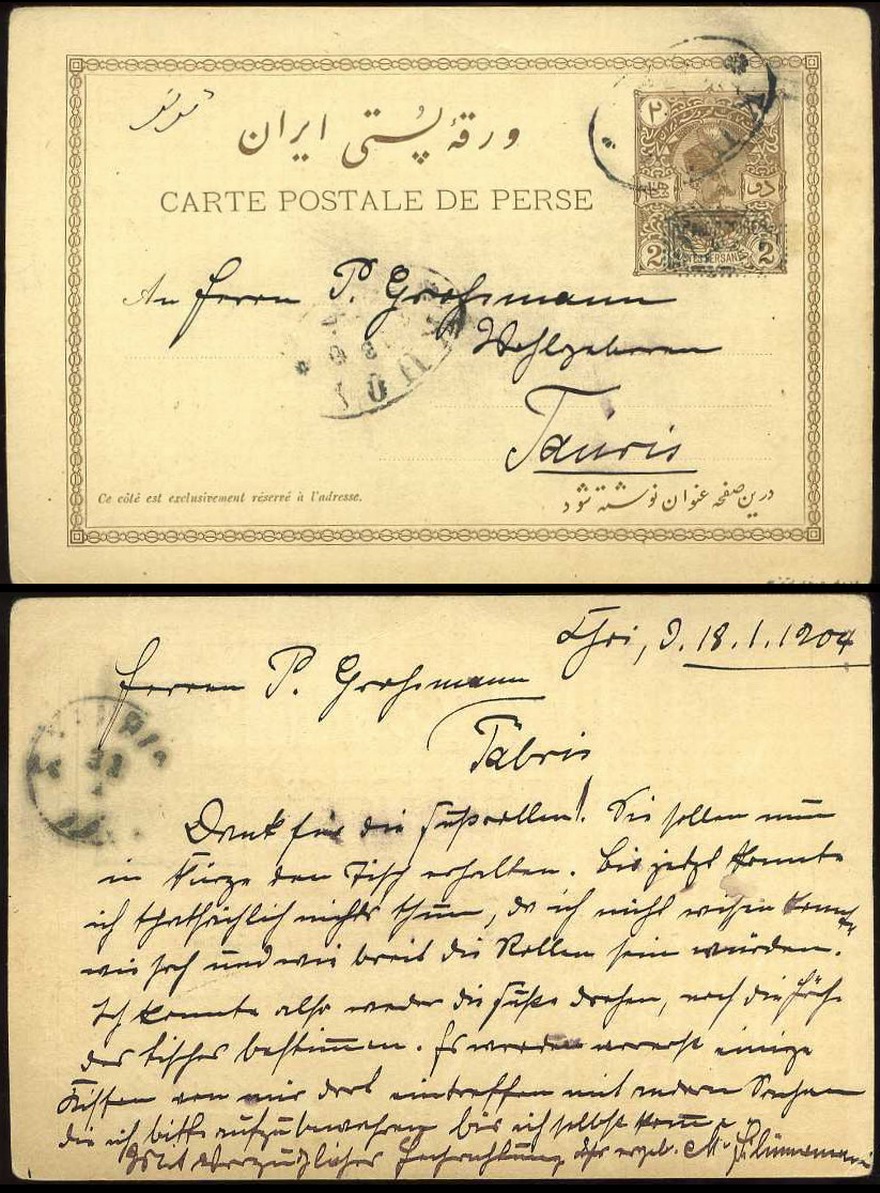 ورقهٔ پستی ایران
CARTE POSTALE DE PERSE
۲
دو
2 2
POSTES PERSANES
An Herrn P. Grossmann
Wohlgeboren
Täuris
Ce côté est exclusivement réservé à l'adresse.
درین صفحه عنوان نوشته شود
Choi, d. 18.1.1904
Herrn P. Grossmann
Täbris
Dank für die Fussrollen! Sie sollen nun
in Kürze den Tisch erhalten. Bis jetzt konnte
ich thatsächlich nichts thun, da ich nicht wissen konnte
wie hoch und wie breit die Rollen sein würden.
Ich konnte also weder die Füsse drehen, noch die Höhe
des Tisches bestimmen. Es werden vorerst einige
Kisten von mir dort eintreffen mit andern Sachen
die ich bitte aufzubewahren bis ich selbst komme.
Mit vorzüglicher Hochachtung Ihr ergeb. M.